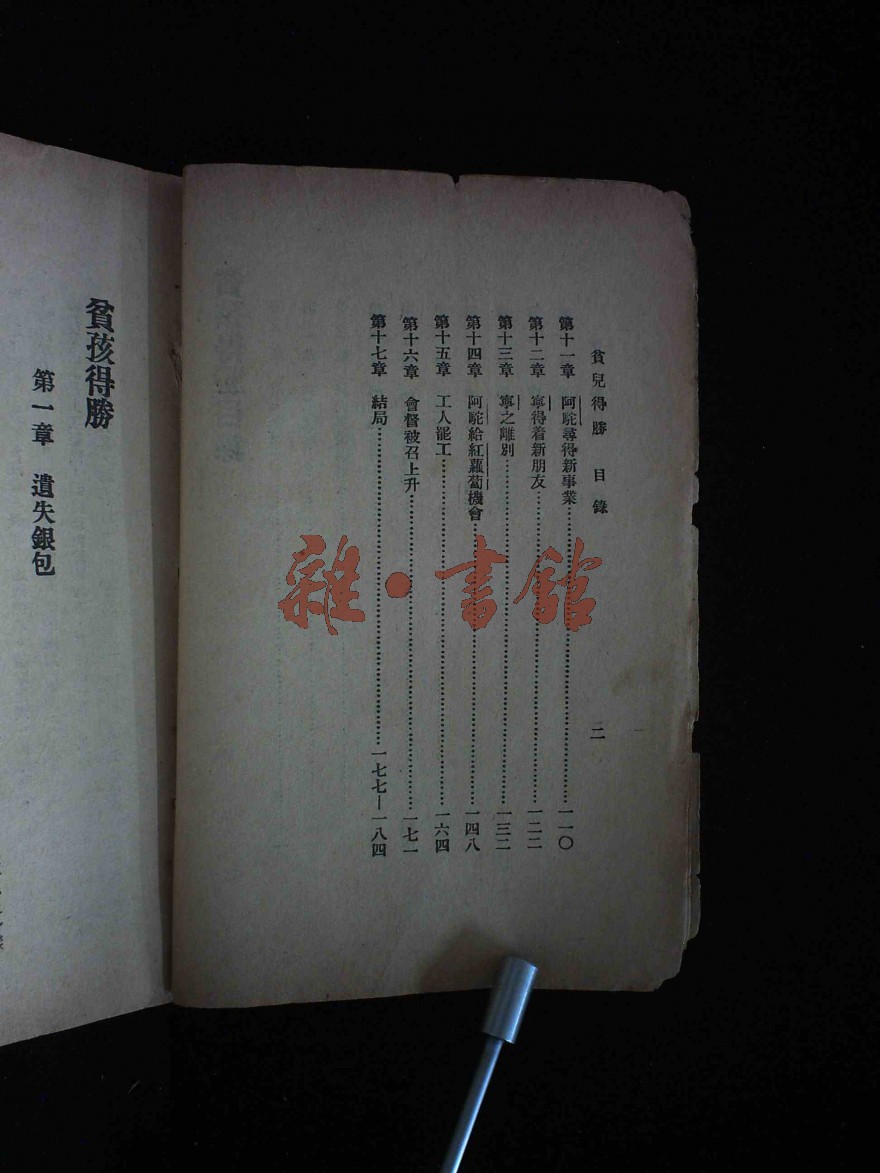 貧兒得勝 目錄
二
第十一章 阿駝尋得新事業 一一〇
第十二章 寧得着新朋友 一二二
第十三章 寧之離別 一三二
第十四章 阿駝給紅蘿蔔機會 一四八
第十五章 工人罷工 一六四
第十六章 會督被召上升 一七一
第十七章 結局 一七七—一八四
貧孩得勝
第一章 遺失銀包
雜·書館